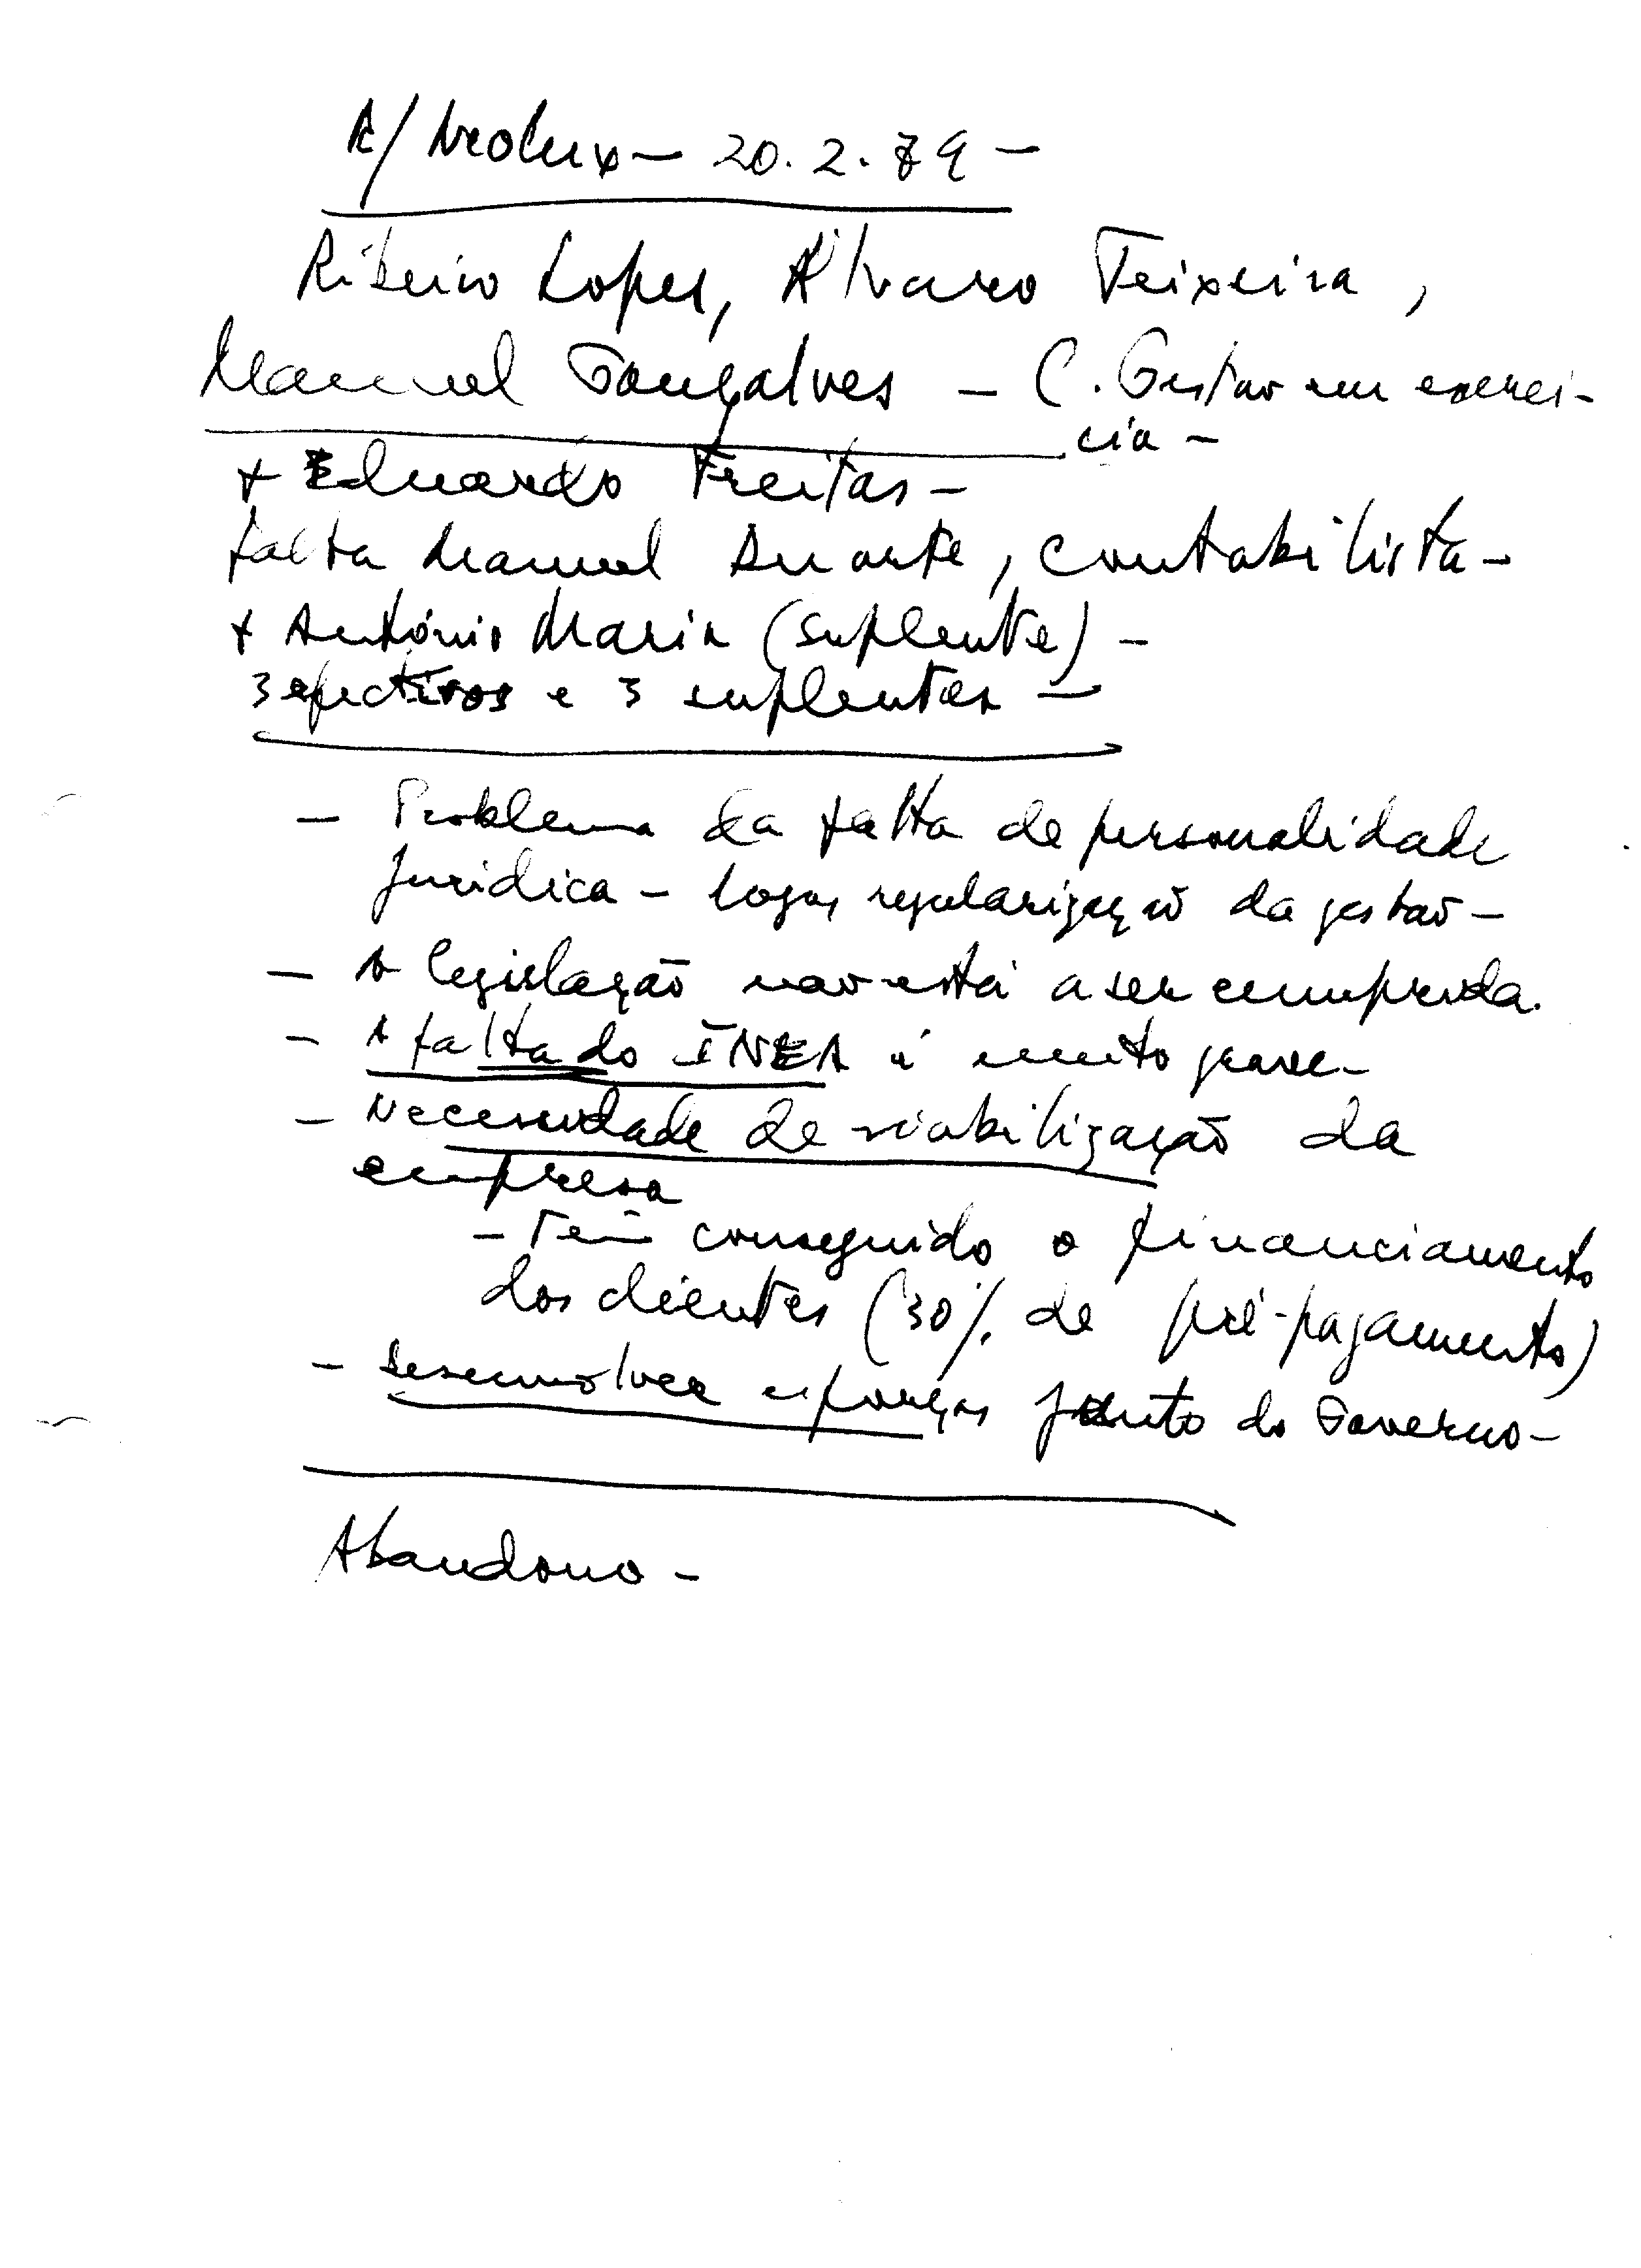 A/ Neolux — 20.2.79 —
Ribeiro Lopes, Álvaro Teixeira,
Manuel Gonçalves — C. Gestão em exercí-
cio —
+ Eduardo Freitas —
falta Manuel Duarte, contabilista —
+ António Maria (suplente) —
3 efectivos e 3 suplentes —
— Problema da falta de personalidade
jurídica — logo, regularização da gestão —
— A legislação não está a ser cumprida.
— A falta do INEA é muito grave —
— Necessidade de viabilização da
empresa
— Têm conseguido o financiamento
dos clientes (30% de pré-pagamento)
— Desenvolver esforços junto do Governo —
Abandono —